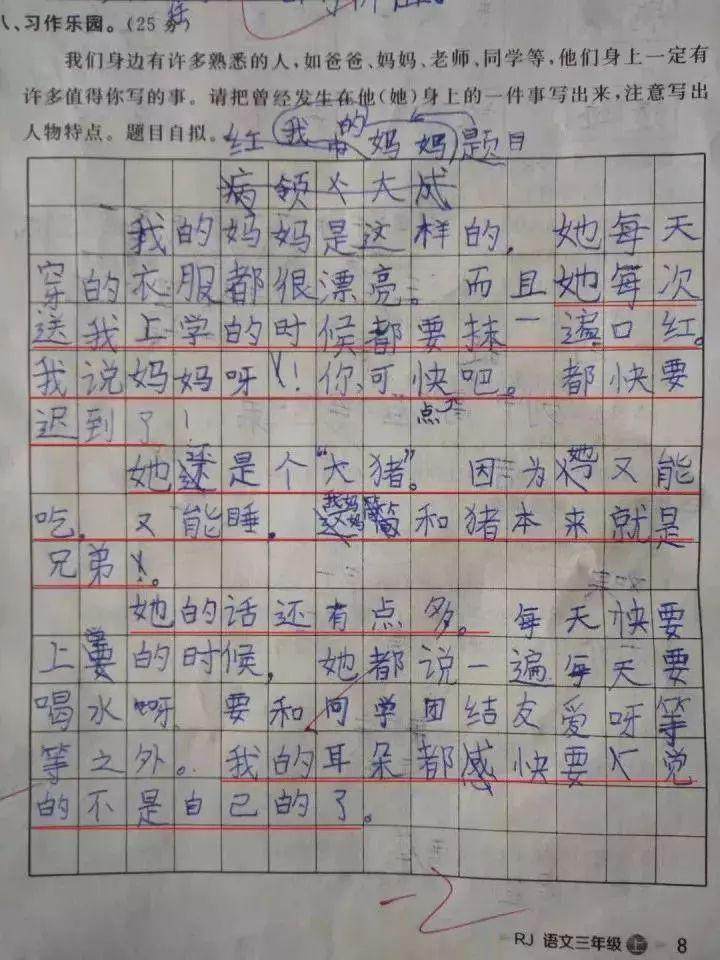 八、习作乐园。(25 分)
我们身边有许多熟悉的人,如爸爸、妈妈、老师、同学等,他们身上一定有
许多值得你写的事。请把曾经发生在他(她)身上的一件事写出来,注意写出
人物特点。题目自拟。
我的妈妈 题目
病领 大成
我的妈妈是这样的,她每天
穿的衣服都很漂亮。而且她每次
送我上学的时候都要抹一遍口红。
我说妈妈呀!你可快点吧。都快要
迟到了!
她还是个“大猪”。因为她又能
吃,又能睡,我妈妈 和猪本来就是
兄弟。
她的话还有点多。每天快要
上学的时候,她都说一遍每天要
喝水呀 要和同学团结友爱呀等
等之外。我的耳朵都感快要 觉
的不是自己的了。
-2
RJ 语文三年级 上 8